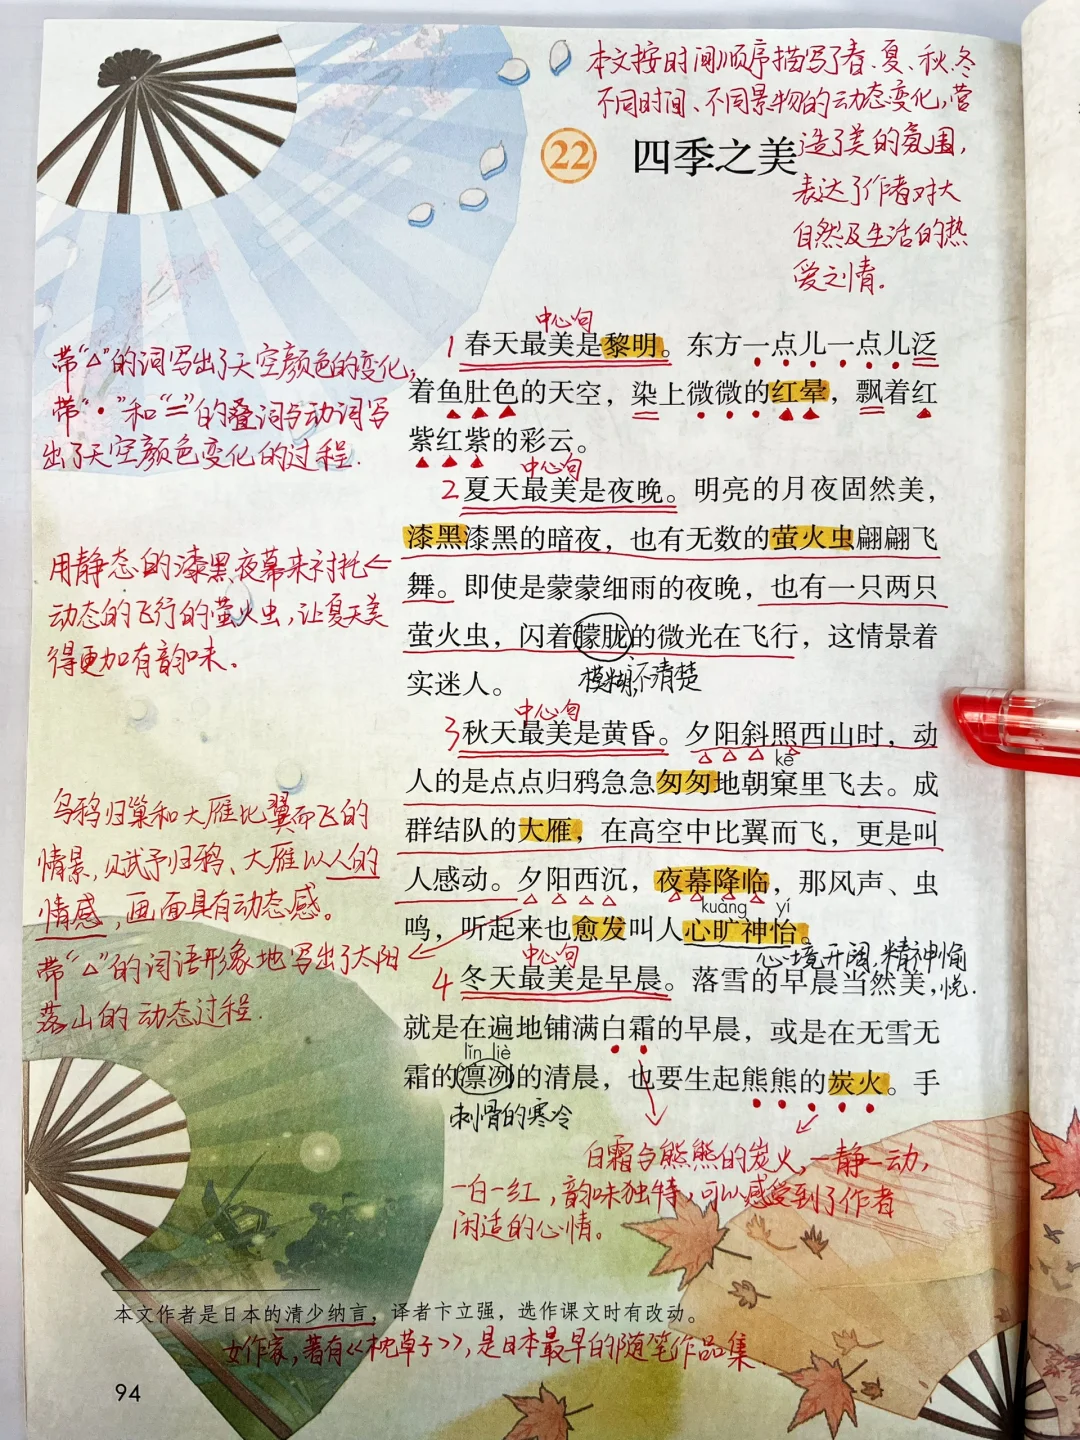 本文按时间顺序描写了春、夏、秋、冬
不同时间、不同景物的动态变化,营
造了美的氛围,
表达了作者对大
自然及生活的热
爱之情。
22 四季之美
中心句
1 春天最美是黎明。东方一点儿一点儿泛
着鱼肚色的天空，染上微微的红晕，飘着红
紫红紫的彩云。
带“△”的词写出了天空颜色的变化,
带“·”和“=”的叠词与动词写
出了天空颜色变化的过程.
中心句
2 夏天最美是夜晚。明亮的月夜固然美，
漆黑漆黑的暗夜，也有无数的萤火虫翩翩飞
舞。即使是蒙蒙细雨的夜晚，也有一只两只
萤火虫，闪着朦胧的微光在飞行，这情景着
模糊,不清楚
实迷人。
用静态的漆黑夜幕来衬托
动态的飞行的萤火虫,让夏天美
得更加有韵味。
中心句
3 秋天最美是黄昏。夕阳斜照西山时，动
kē
人的是点点归鸦急急匆匆地朝窠里飞去。成
群结队的大雁，在高空中比翼而飞，更是叫
人感动。夕阳西沉，夜幕降临，那风声、虫
kuàng yí
鸣，听起来也愈发叫人心旷神怡。
心境开阔,精神愉
悦.
乌鸦归巢和大雁比翼而飞的
情景,赋予归鸦、大雁以人的
情感,画面具有动态感。
带“△”的词语形象地写出了太阳
落山的动态过程.
中心句
4 冬天最美是早晨。落雪的早晨当然美，
就是在遍地铺满白霜的早晨，或是在无雪无
lǐn liè
霜的凛冽的清晨，也要生起熊熊的炭火。手
刺骨的寒冷
白霜与熊熊的炭火,一静一动,
一白一红,韵味独特,可以感受到了作者
闲适的心情。
本文作者是日本的清少纳言，译者卞立强，选作课文时有改动。
女作家,著有《枕草子》,是日本最早的随笔作品集.
94